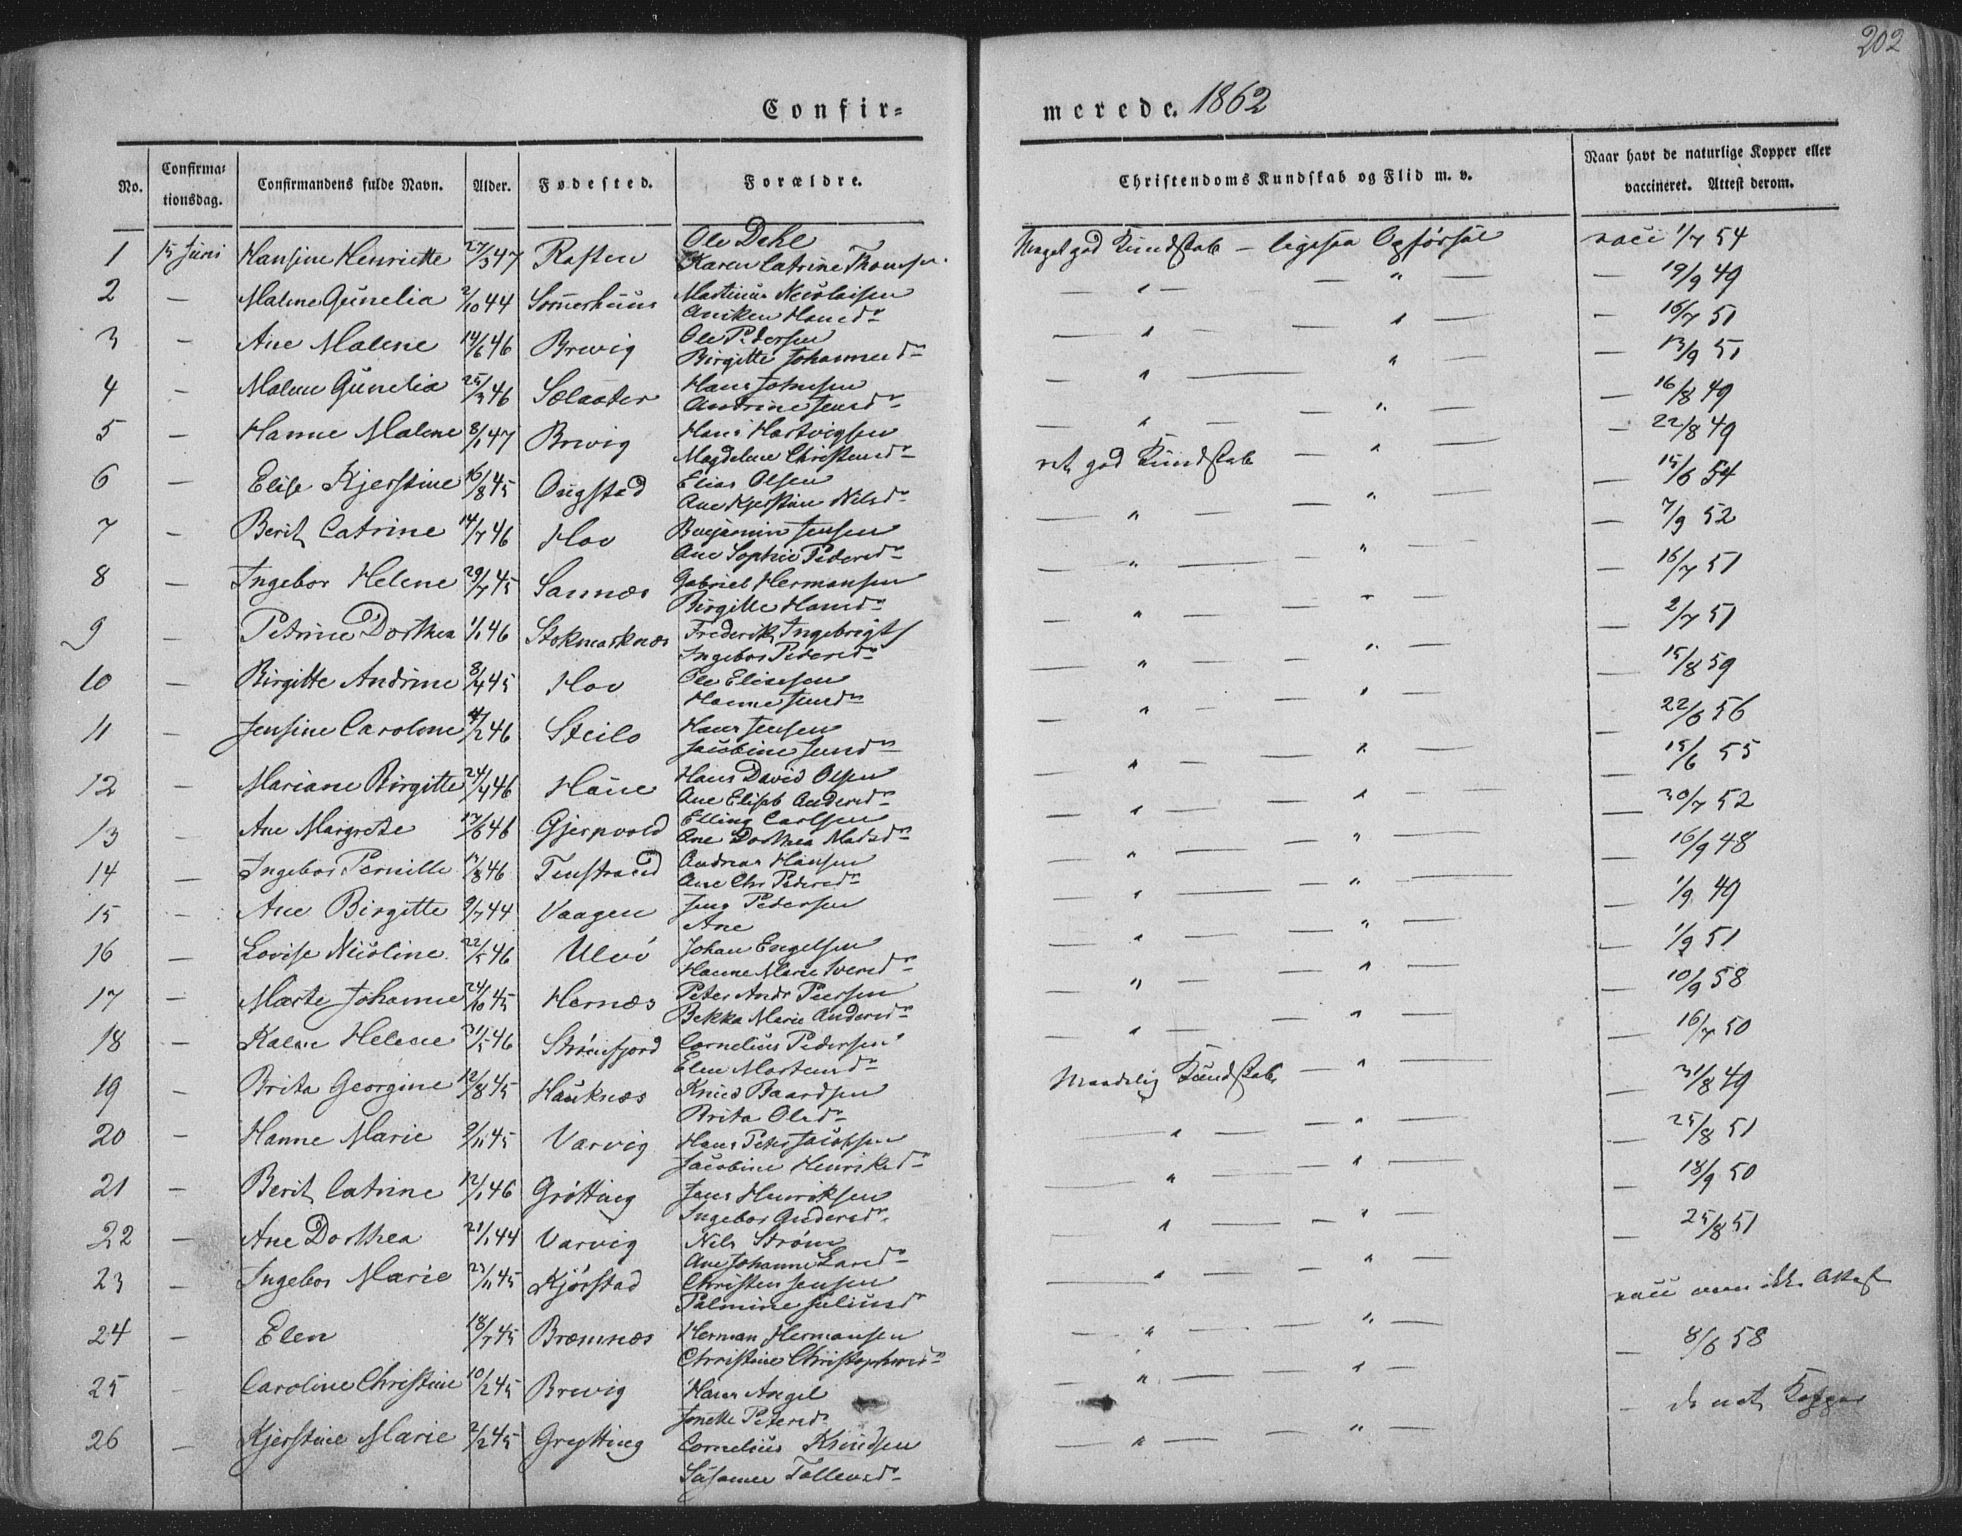 202
Confir= merede. 1862
No. Confirmationsdag. Confirmandens fulde Navn. Alder. Fødested. Forældre. Christendoms Kundskab og Flid m. v. Naar havt de naturlige Kopper eller vaccineret. Attest derom.
1 15 Juni Hansine Henriette 27/3 47 Raften Ole Dahl Meget god Kundskab — ligesaa Opførsel vacc 1/7 54
Karen Catrine Thomsen
2 — Malene Gunelia 2/10 44 Sommerhuus Martinus Nicolaisen — " — — " — — 19/9 49
Aniken Hansdr
3 — Ane Malene 14/6 46 Brevig Ole Pedersen — " — — " — — 16/7 51
Birgitte Johannesdr
4 — Malene Gunelia 25/3 46 Sælaater Hans Johnsen — " — " — — 13/9 51
Andrine Jensdr
5 — Hanne Malene 8/1 47 Brevig Hans Hartvigsen — " — — " — — 16/8 49
Magdelene Christensdr
6 — Elise Kjerstine 16/8 45 Ougstad Elias Olsen ret god Kundskab — " — — 22/8 49
Ane Kjerstine Nilsdr
7 — Berit Catrine 14/7 46 Hov Benjamin Jensen — " — — " — — 15/6 54
Ane Sophie Pedersdr
8 — Ingebor Helene 29/7 45 Sannæs Gabriel Hermansen — " — — " — — 7/9 52
Birgitte Hansdr
9 — Petrine Dorthea 1/1 46 Stokmarknæs Frederik Ingebrigts — " — — " — — 16/7 51
Ingebor Pedersdr
10 — Birgitte Andrine 8/4 45 Hov Ole Eliasen — " — — " — — 2/7 51
Hanne Jensdr
11 — Jensine Caroline 4/2 46 Steilo Hans Jensen — " — — " — — 15/8 59
Jacobine Jensdr
12 — Mariane Birgitte 24/4 46 Haue Hans David Olsen — " — — " — — 22/6 56
Ane Elisab Andersdr
13 — Ane Margrete 17/6 46 Gjerpvold Elling Carlsen — " — — " — — 15/6 55
Ane Dorthea Madsdr
14 — Ingebor Pernille 17/8 46 Finstrand Andreas Hansen — " — — " — — 30/7 52
Ane Chr Pedersdr
15 — Ane Birgitte 9/7 44 Vaagen Jens Pedersen — " — — " — — 16/9 48
Ane
16 — Lovise Nicoline 22/5 46 Ulvø Johan Engelsen — " — — " — — 1/9 49
Hanne Marie Iversdr
17 — Marte Johanne 24/10 45 Hernæs Peter Andr Peersen — " — — " — — 1/9 51
Bekka Marie Andersdr
18 — Kalene Helene 31/5 46 Strømfjord Cornelius Pedersen — " — — " — — 10/9 58
Elen Mortensdr
19 — Brita Georgine 12/8 45 Hauknæs Knud Baardsen Maadelig Kundskab — " — — 16/7 50
Brita Olsdr
20 — Hanne Marie 9/11 45 Varvig Hans Peter Jacobsen — " — — " — — 31/8 49
Jacobine Henriksdr
21 — Berit Catrine 12/1 46 Grøtting Jens Henriksen — " — — " — — 25/8 51
Ingebor Andersdr
22 — Ane Dorthea 21/1 44 Varvig Nils Strøm — " — — " — — 18/9 50
Ane Johanne Larsdr
23 — Ingebor Marie 23/11 45 Kjørstad Christen Jensen — " — — " — — 25/8 51
Palmine Juliusdr
24 — Elen 18/7 45 Bræmnæs Herman Hermansen — " — — " — vacc men ikke Attest
Christine Christophersdr
25 — Caroline Christine 10/2 45 Brevig Hans Angel — " — — " — — 8/6 58
Jonette Petersdr
26 — Kjerstine Marie 2/2 45 Grytting Cornelius Knudsen — " — — " — — de nat Kopper
Susanne Tollevsdr